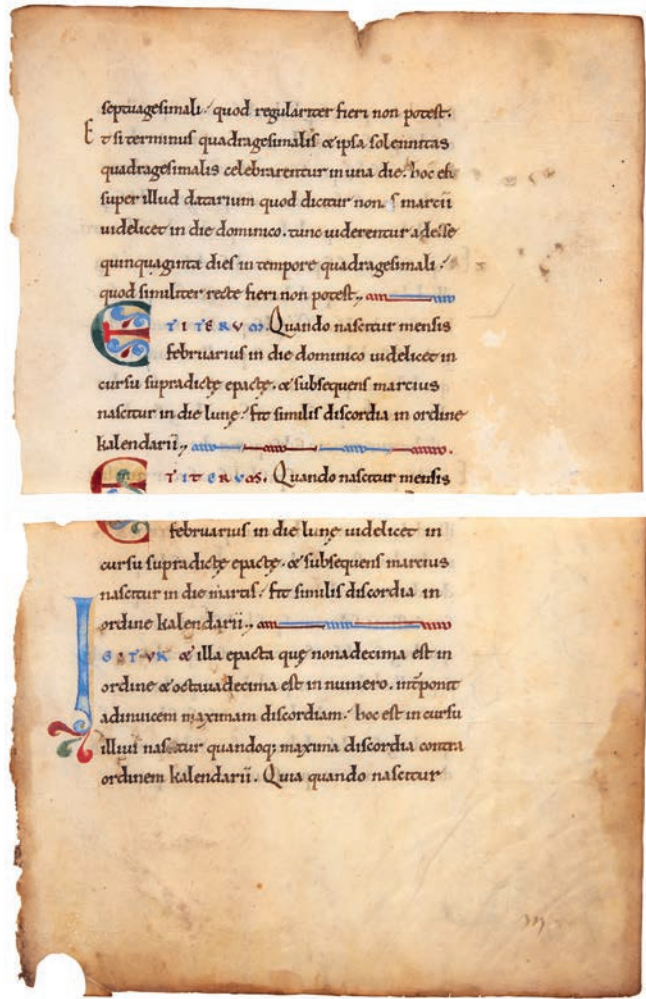 septuagesimali. quod regulariter fieri non potest.
Et si terminus quadragesimalis & ipsa solennitas
quadragesimalis celebrarentur in una die. hoc est
super illud datarium quod dicitur non. marcii
uidelicet in die dominico. tunc uiderentur adesse
quinquaginta dies in tempore quadragesimali.
quod similiter recte fieri non potest.
ET ITERUM. Quando nascitur mensis
februarius in die dominico uidelicet in
cursu supradictę epactę. & subsequens marcius
nascitur in die lunę. fit similis discordia in ordine
kalendarii.
ET ITERUM. Quando nascitur mensis
februarius in die lunę uidelicet in
cursu supradictę epactę. & subsequens marcius
nascitur in die martis. fit similis discordia in
ordine kalendarii.
IGITUR & illa epacta quę nonadecima est in
ordine & octauadecima est in numero.
adinuicem maximam discordiam. hoc est in cursu
illius nascitur quandoq; maxima discordia contra
ordinem kalendarii. Quia quando nascitur